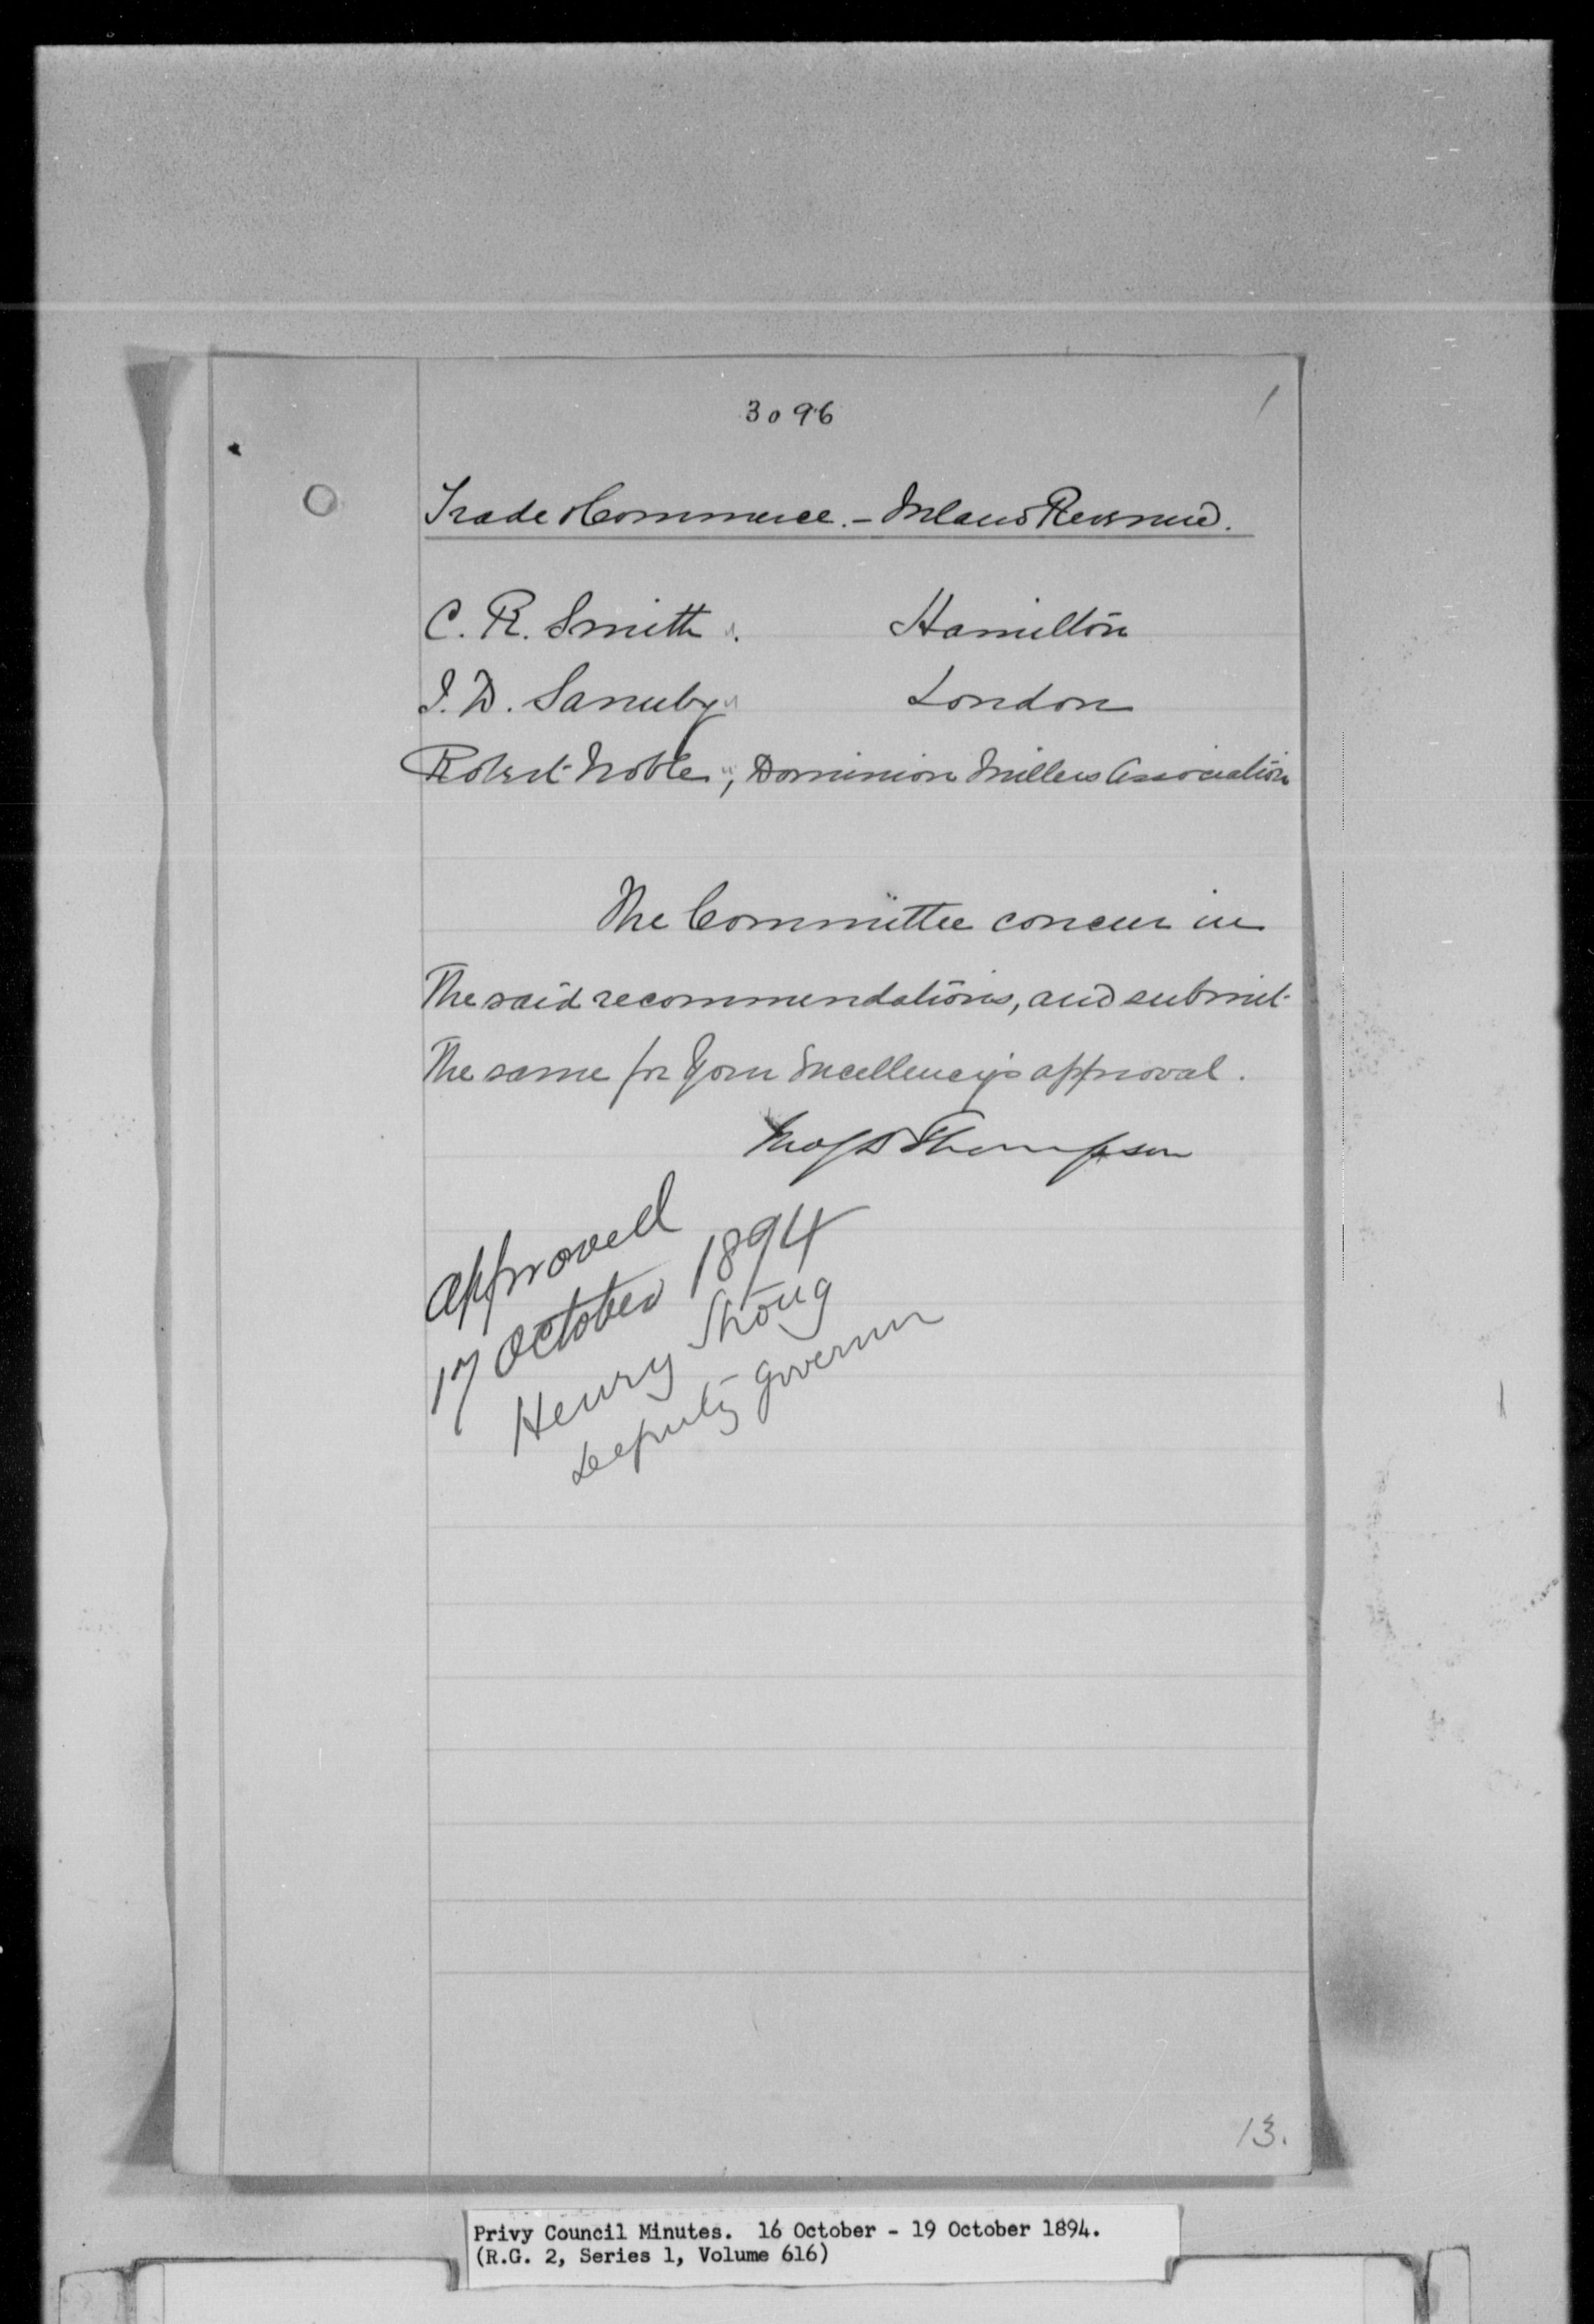 3096
1
Trade & Commerce. - Inland Revenue.
C. R. Smith " Hamilton
J. D. Saunby " London
Robert Noble ", Dominion Millers Association
The Committee concur in
the said recommendations, and submit
the same for Your Excellency's approval.
Jno S D Thompson
approved
17 October 1894
Henry Strong
Deputy Governor
13.
Privy Council Minutes. 16 October - 19 October 1894.
(R.G. 2, Series 1, Volume 616)